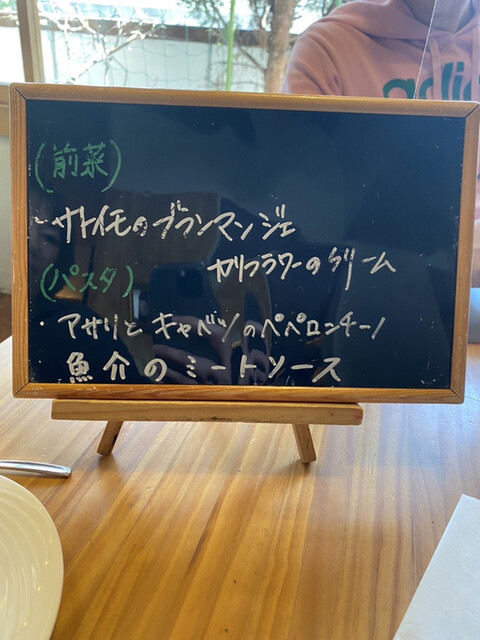 (前菜)
・サトイモのブランマンジェ
カリフラワーのクリーム
(パスタ)
・アサリとキャベツのペペロンチーノ
魚介のミートソース